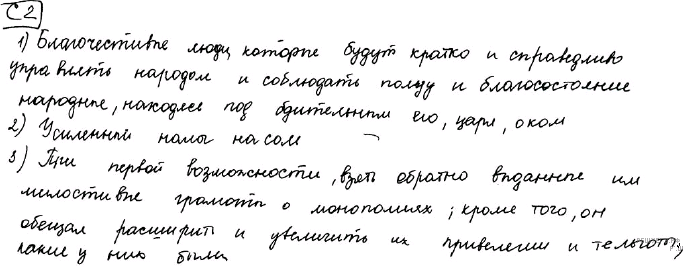 С2
1) Благочестивые люди, которые будут кратко и справедливо
управлять народом и соблюдать пользу и благосостояние
народные, находясь под бдительным его, царя, оком
2) Усиленный налог на сом
3) При первой возможности, взять обратно выданные им
милостивые грамоты о монополиях; кроме того, он
обещал расширить и увеличить их привелегии и те льготы,
какие у них были